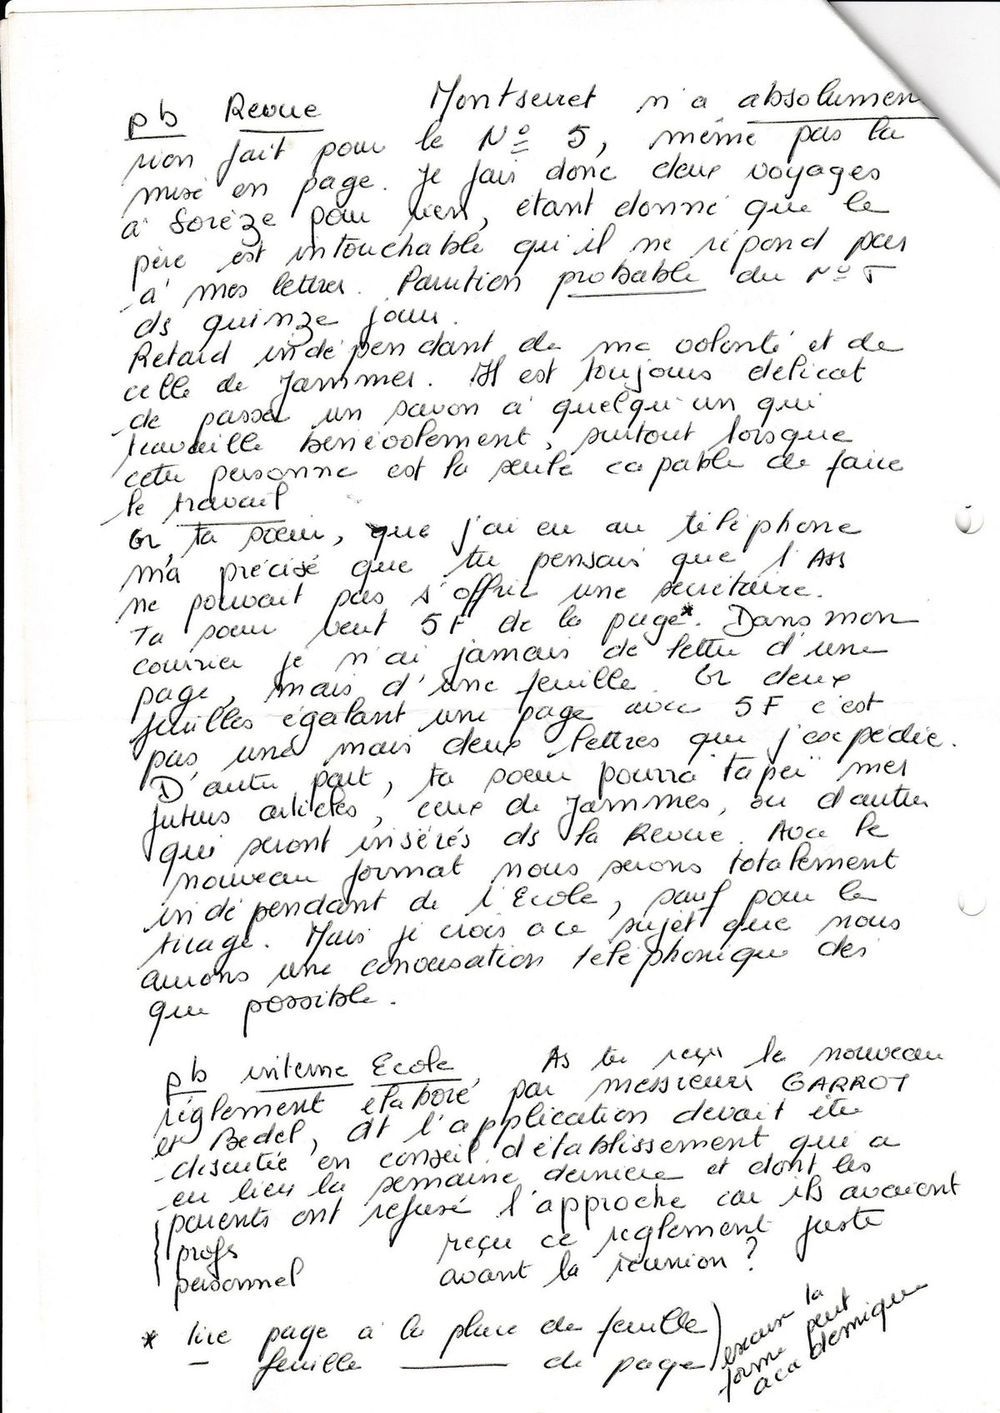 pb Revue Montserret n'a absolument
rien fait pour le N° 5, même pas la
mise en page. Je fais donc deux voyages
à Sorèze pour rien, étant donné que le
père est intouchable qu'il ne répond pas
à mes lettres. Parution probable du N° 5
ds quinze jours.
Retard indépendant de ma volonté et de
celle de Jammes. Il est toujours délicat
de passer un savon à quelqu'un qui
travaille bénévolement, surtout lorsque
cette personne est la seule capable de faire
le travail
Or, ta sœur, que j'ai eu au téléphone
m'a précisé que tu pensais que l'Ass
ne pouvait pas s'offrir une secrétaire.
Ta sœur veut 5F de la page*. Dans mon
courrier je n'ai jamais de lettre d'une
page, mais d'une feuille. Or deux
feuilles égalant une page avec 5F c'est
pas une mais deux lettres que j'expédie.
D'autre part, ta sœur pourra "taper" mes
futurs articles, ceux de Jammes, ou d'autres
qui seront insérés ds la Revue. Avec le
nouveau format nous serons totalement
indépendant de l'Ecole, sauf pour le
tirage. Mais je crois à ce sujet que nous
aurons une conversation téléphonique dès
que possible.
pb interne Ecole, As tu reçu le nouveau
règlement élaboré par messieurs GARROT
et Bedel, dt l'application devait être
discutée en conseil d'établissement qui a
eu lieu la semaine dernière et dont les
parents ont refusé l'approche car ils avaient
profs reçu ce règlement juste
personnel avant la réunion ?
* lire page à la place de feuille
– feuille ——— de page
excuse la
forme peut
academique